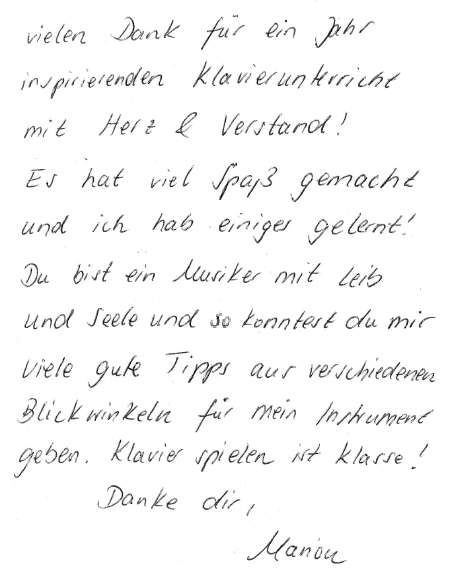 vielen Dank für ein Jahr
inspirierenden Klavierunterricht
mit Herz & Verstand!
Es hat viel Spaß gemacht
und ich hab einiges gelernt!
Du bist ein Musiker mit Leib
und Seele und so konntest du mir
viele gute Tipps aus verschiedenen
Blickwinkeln für mein Instrument
geben. Klavier spielen ist klasse!
Danke dir,
Marion